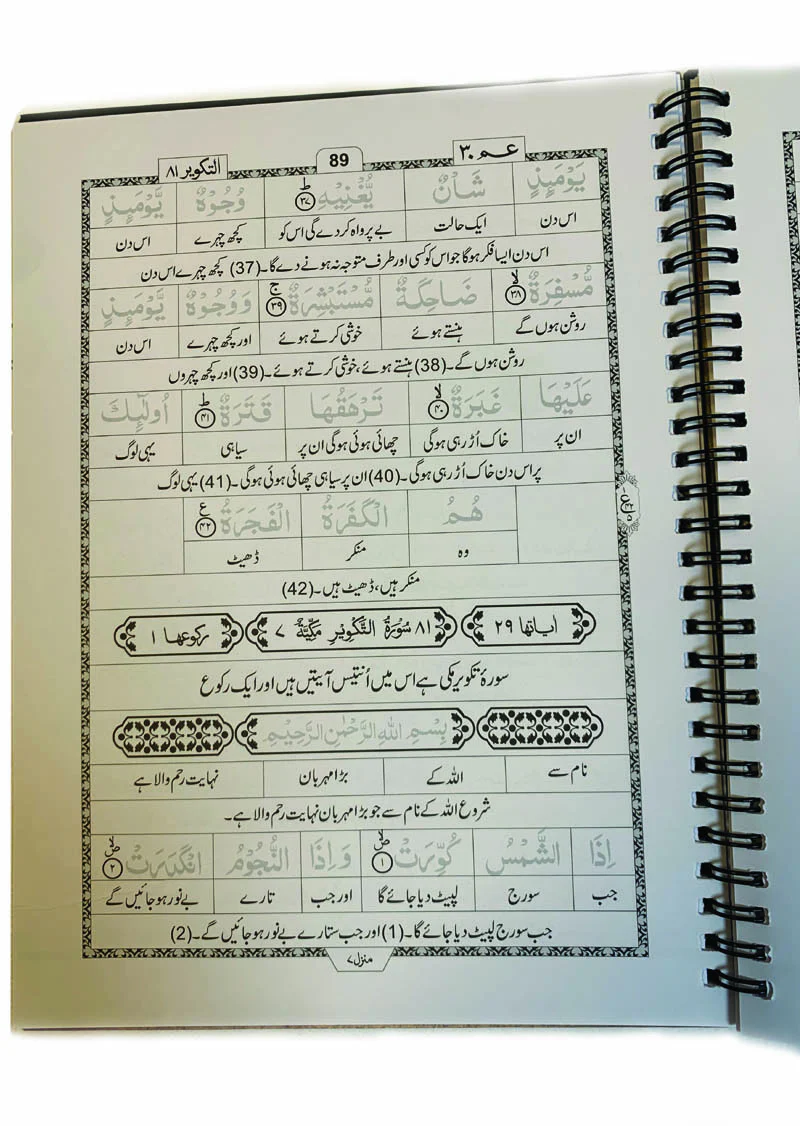 عم ۳۰
89
التكوير ۸۱
يَوْمَئِذٍ شَاْنٌ يُّغْنِيْهِ ۳۷ؕ وُجُوْهٌ يَّوْمَئِذٍ
اس دن ایک حالت بے پرواہ کر دے گی اس کو کچھ چہرے اس دن
اس دن ایسا فکر ہوگا جو اس کو کسی اور طرف متوجہ نہ ہونے دے گا۔ (37) کچھ چہرے اس دن
مُّسْفِرَةٌ ۳۸ۙ ضَاحِكَةٌ مُّسْتَبْشِرَةٌ ۳۹ۚ وَوُجُوْهٌ يَّوْمَئِذٍ
روشن ہوں گے ہنستے ہوئے خوشی کرتے ہوئے اور کچھ چہرے اس دن
روشن ہوں گے۔ (38) ہنستے ہوئے، خوشی کرتے ہوئے۔ (39) اور کچھ چہروں
عَلَيْهَا غَبَرَةٌ ۴۰ۙ تَرْهَقُهَا قَتَرَةٌ ۴۱ؕ اُولٰٓئِكَ
ان پر خاک اُڑ رہی ہوگی چھائی ہوئی ہوگی ان پر سیاہی یہی لوگ
پر اس دن خاک اُڑ رہی ہوگی۔ (40) ان پر سیاہی چھائی ہوئی ہوگی۔ (41) یہی لوگ
هُمُ الْكَفَرَةُ الْفَجَرَةُ ۴۲ ع
وہ منکر ڈھیٹ
منکر ہیں، ڈھیٹ ہیں۔ (42)
اياتها ۲۹ ۸۱ سُوْرَةُ التَّكْوِيْرِ مَكِّيَّةٌ ۷ ركوعها ۱
سورۂ تکویر مکی ہے اس میں اُنتیس آیتیں ہیں اور ایک رکوع
بِسْمِ اللهِ الرَّحْمٰنِ الرَّحِيْمِ
نام سے اللہ کے بڑا مہربان نہایت رحم والا ہے
شروع اللہ کے نام سے جو بڑا مہربان نہایت رحم والا ہے۔
اِذَا الشَّمْسُ كُوِّرَتْ ۱ وَاِذَا النُّجُوْمُ انْكَدَرَتْ ۲
جب سورج لپیٹ دیا جائے گا اور جب تارے بے نور ہو جائیں گے
جب سورج لپیٹ دیا جائے گا۔ (1) اور جب ستارے بے نور ہو جائیں گے۔ (2)
منزل ۷